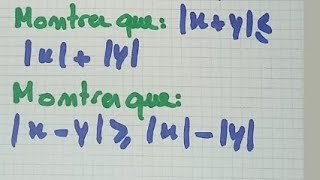 Montra que: |x+y|≤
|x|+|y|
Montra que:
|x-y|≥|x|-|y|